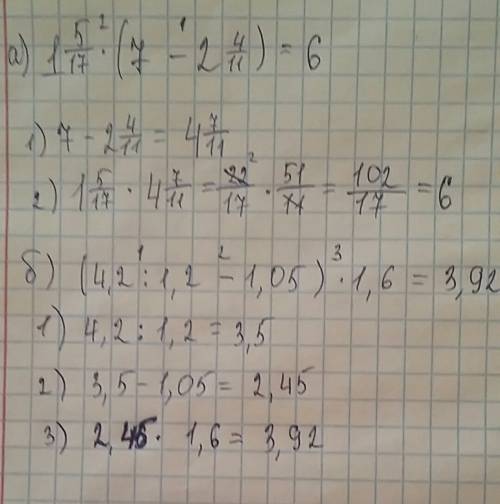 а) 1 5/17 ·² (7 -¹ 2 4/11) = 6
1) 7 - 2 4/11 = 4 7/11
2) 1 5/17 · 4 7/11 = 22²/17 · 51/11 = 102/17 = 6
б) (4,2 :¹ 1,2 -² 1,05) ·³ 1,6 = 3,92
1) 4,2 : 1,2 = 3,5
2) 3,5 - 1,05 = 2,45
3) 2,45 · 1,6 = 3,92